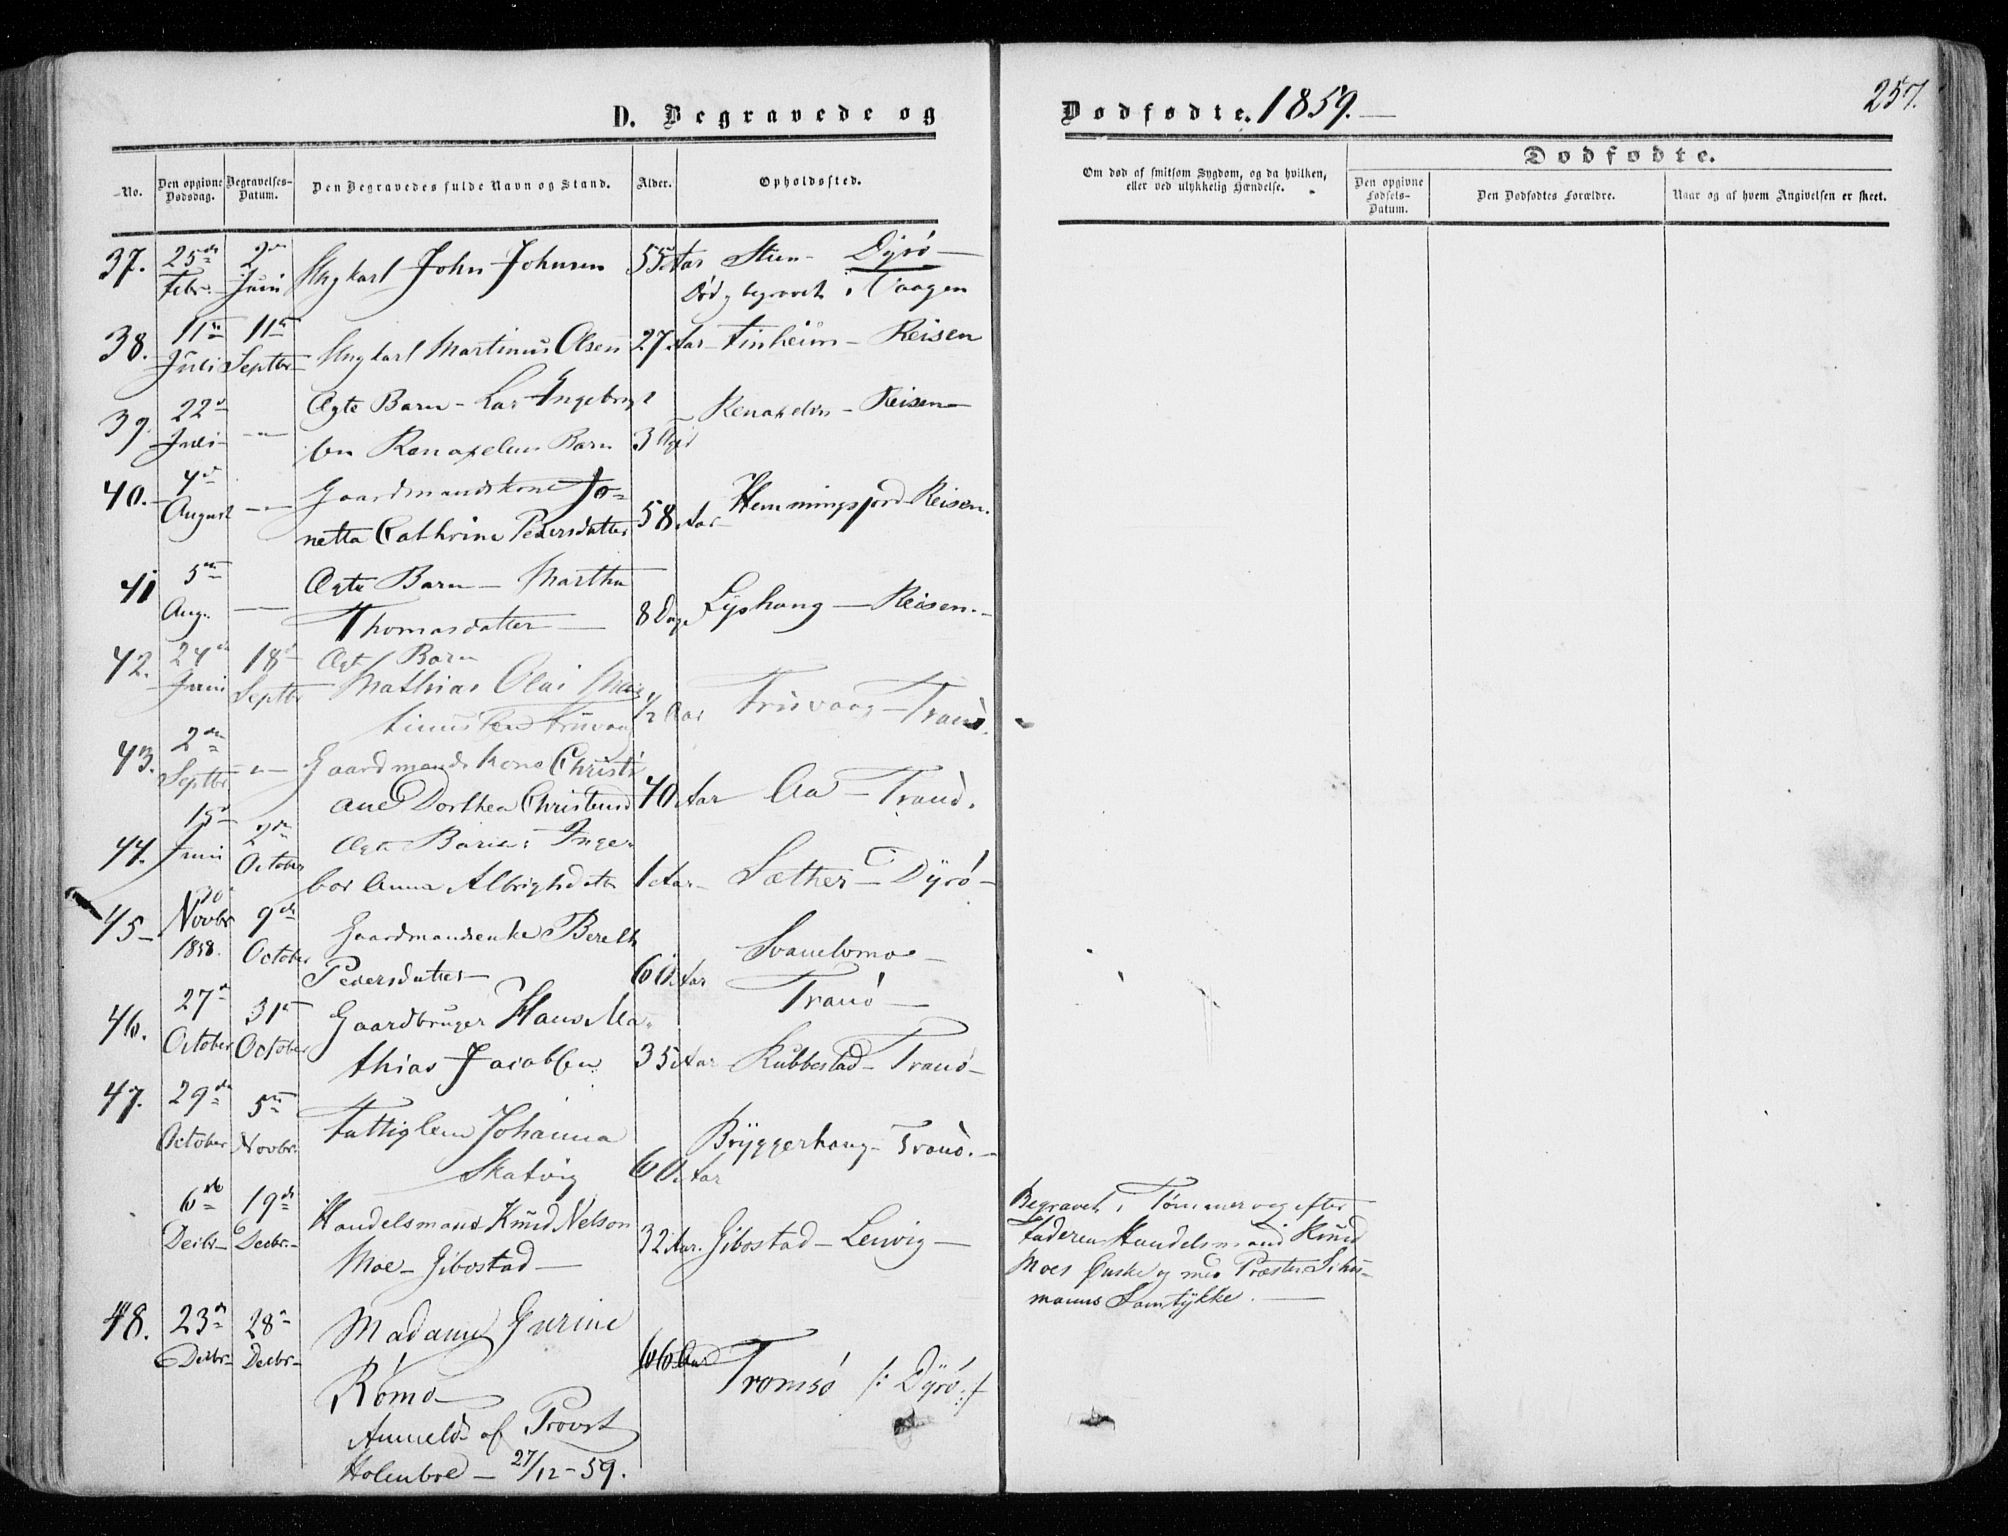 D. Begravede og
Dødfødte. 1859.
257.
No.
Den opgivne Dødsdag.
Begravelses-Datum.
Den Begravedes fulde Navn og Stand.
Alder.
Opholdssted.
Om død af smitsom Sygdom, og da hvilken, eller ved ulykkelig Hændelse.
Dødfødte.
Den opgivne Fødsels-Datum.
Den Dødfødtes Forældre.
Naar og af hvem Angivelsen er skeet.
37. 25de 2den Ungkarl John Johnsen 55 Aar Dyrø
Febr. Juni Død og begravet i Vaagen
38. 11te 11te Ungkarl Martinus Olsen 27 Aar Finheim - Reisen
Juli Septbr
39. 22 Ægte Barn - Reisen
Juli Barn 3
40. 4de Gaardmandskone Jo-
August netta Cathrine Pedersdatter 58 Aar Hemmingsfjord Reisen.
41 5te Ægte Barn - Martha
Aug. Thomasdatter 8 Dage Lyshaug - Reisen.
42. 24de 18 Ægte Barn
Juni Septbr Mathias Olai Mar-
tinus 1/2 Aar Trano.
43. 2den Gaardmandskone Christi
Septbr ane Dorthea 40 Aar Aa - Tranø.
44. 15 2den Ægte Barn: Inge-
Juni October bor Anna Albrigtsdatter 1 Aar Sæther - Dyrø -
45 30 9de Gaardmandsenke Bereth
Novbr 1858. October Pedersdatter 60 Aar Svanelvmo - Tranø
46. 27 31te Gaardbruger Hans Ma-
October October thias Jacobsen 35 Aar Kubbestad - Tranø -
47. 29de 5te Fattiglem Johanna
October Novbr. Skatvig 60 Aar Bryggerhaug - Tranø. -
6te 19de Handelsmand Knud Nelson
Decbr Decbr. Moe - Gibostad 32 Aar. Gibostad - Lenvig
Begravet i Tømmervig efter
Faderen Handelsmand Knud
Moes Ønske og med
manns Samtykke.
48. 23de 28de Madame Gurine
Decbr Decbr Rømo 66 Aar Tromsø /: Dyrø :/
Anmeldt af Provst
Holmboe - 27/12 - 59.